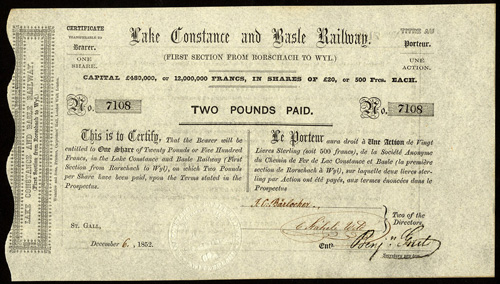 CERTIFICATE
TRANSFERABLE TO
Bearer.
ONE
SHARE.
Lake Constance and Basle Railway.
(FIRST SECTION FROM RORSCHACH TO WYL.)
TITRE AU
Porteur.
UNE
ACTION.
CAPITAL £480,000, or 12,000,000 FRANCS, IN SHARES OF £20, or 500 Frcs. EACH.
No. 7108
TWO POUNDS PAID.
No. 7108
This is to Certify, That the Bearer will be
entitled to One Share of Twenty Pounds or Five Hundred
Francs, in the Lake Constance and Basle Railway (First
Section from Rorschach to Wyl), on which Two Pounds
per Share have been paid, upon the Terms stated in the
Prospectus
Le Porteur aura droit à Une Action de Vingt
Livres Sterling (soit 500 francs), de la Société Anonyme
du Chemin de Fer de Lac Constance et Basle (la première
section de Rorschach à Wyl), sur laquelle deux livres ster-
ling par Action ont été payés, aux termes énoncées dans le
Prospectus
ST. GALL,
December 6, 1852.
Two of the
Directors.
Ent.
Secretary pro tem.
LAKE CONSTANCE AND BASLE RAILWAY.
(First Section from Rorschach to Wyl.)